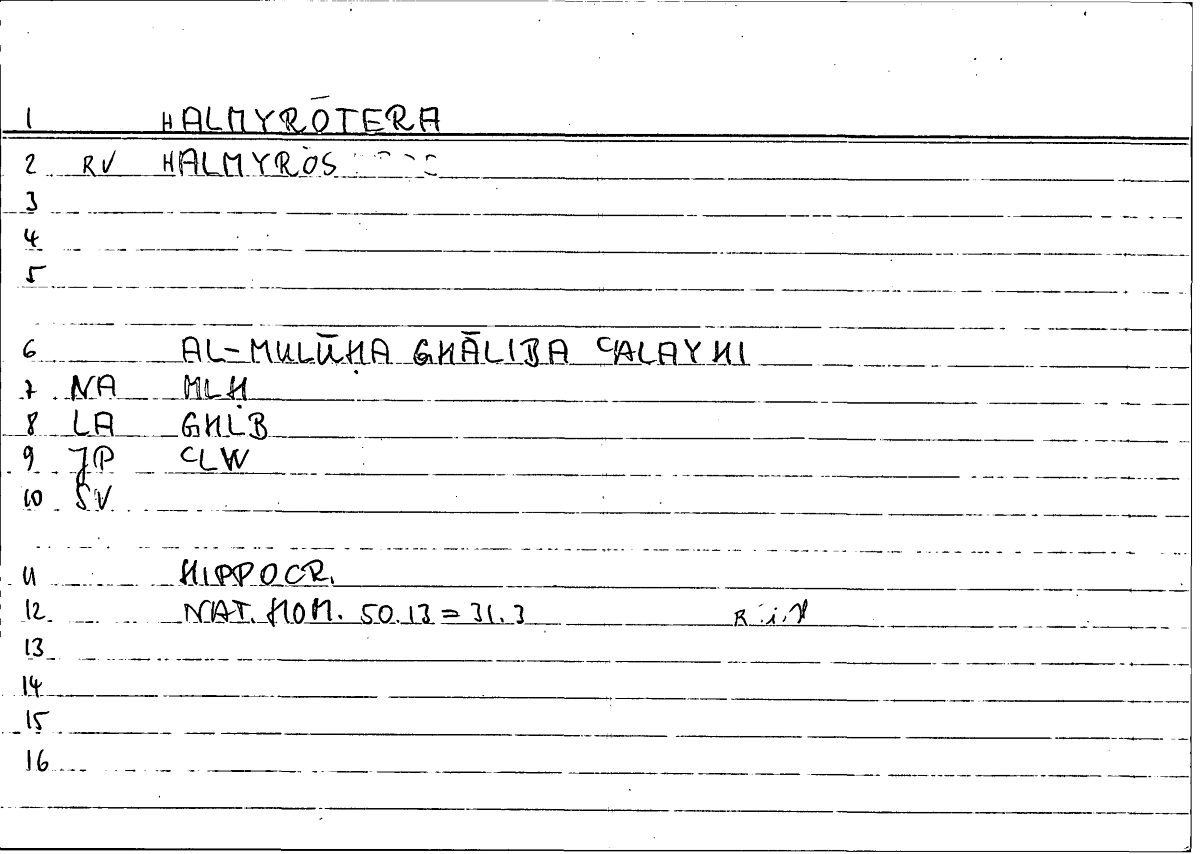 1 HALMYRŌTERA
2 RV HALMYROS
3
4
5
6 AL-MULŪḤA GHĀLIBA ʿALAYHI
7 NA MLḤ
8 LA GHLB
9 JP ʿLW
10 SV
11 HIPPOCR.
12 NAT. HOM. 50.13 = 31.3
13
14
15
16